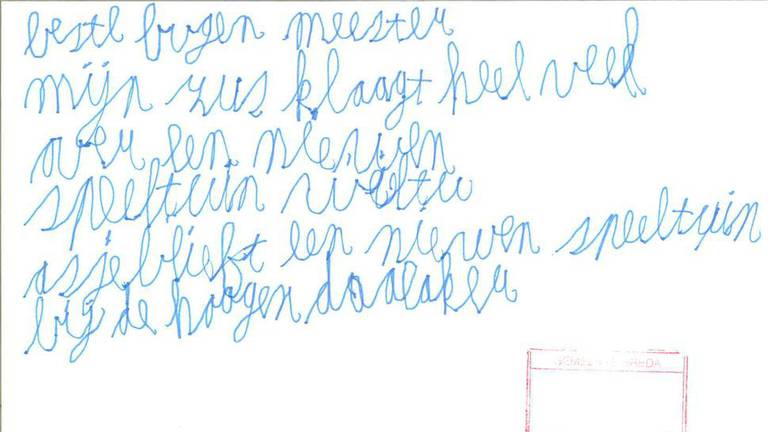 beste burgen meester
mijn zus klaagt heel veel
over een niewen
speeltuin
asjeblieft een niewen speeltuin
bij de hoogen
GEMEENTE BREDA